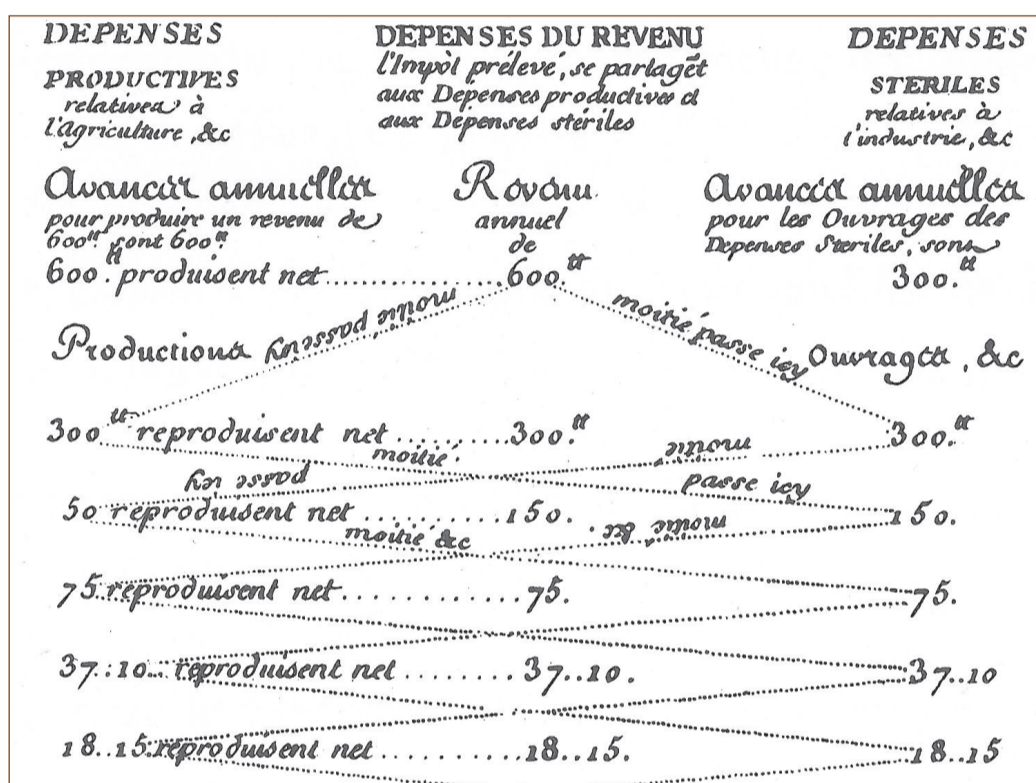 DEPENSES
PRODUCTIVES
relatives à
l'agriculture, &c
DEPENSES DU REVENU
l'Impôt prélevé, se partagēt
aux Dépenses productives et
aux Dépenses stériles
DEPENSES
STERILES
relatives à
l'industrie, &c
Avances annuelles
pour produire un revenu de
600.tt sont 600.tt
600.tt produisent net
Revenu
annuel
de
600.tt
Avances annuelles
pour les Ouvrages des
Depenses Steriles, sont
300.tt
moitié passe icy
moitié passe icy
Productions
Ouvrages, &c
300.tt reproduisent net 300.tt 300.tt
moitié. moitié
passe icy passe icy
50 reproduisent net 150. 150.
moitié &c moitié &c.
75. reproduisent net 75. 75.
37..10.. reproduisent net 37..10. 37..10
18..15. reproduisent net 18..15. 18..15